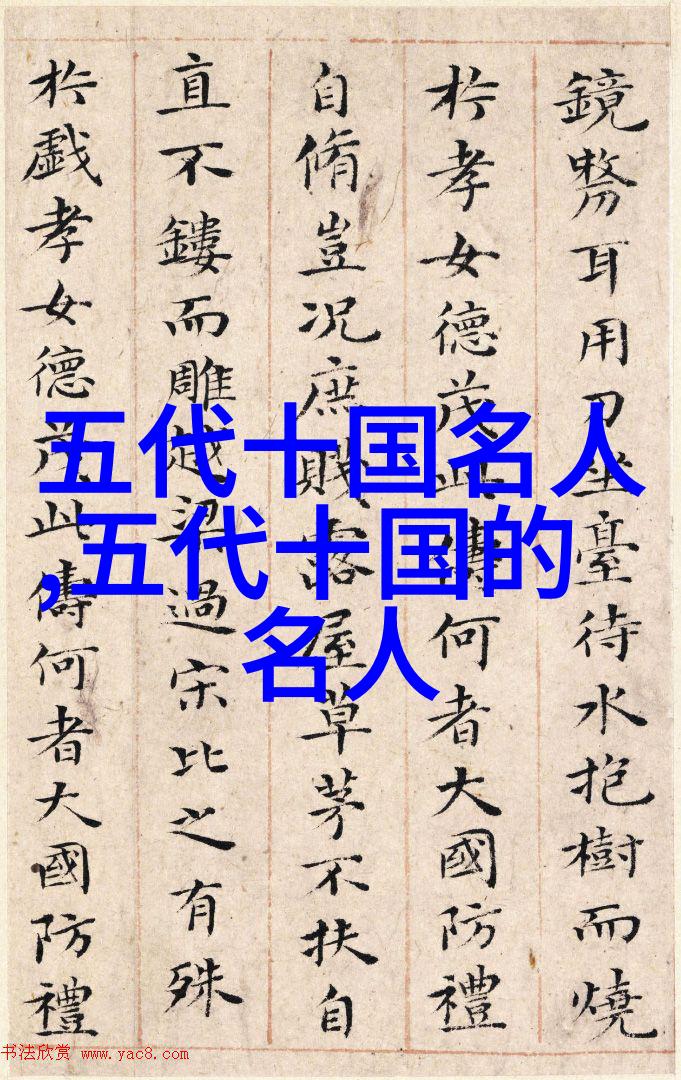 鏡剺耳用刀坐臺待水抱樹而燒
扵孝女德茂此儔何者大國防禮
自脩豈况庶賤露屋草茅不扶自
直不鏤而雕越梁過宋比之有殊
扵戲孝女德茂此儔何者大國防禮
五代十国名人
,五代十国的
名人
书法欣赏 www.yac8.com